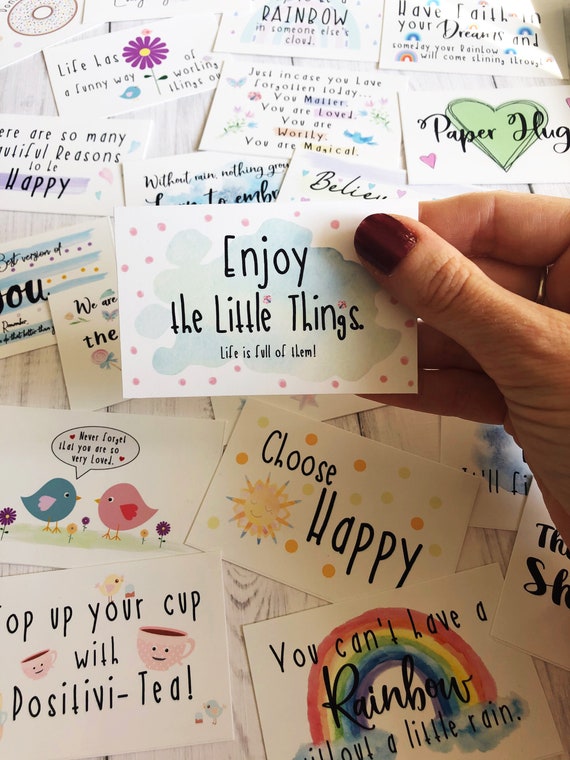 RAINBOW
in someone else's
cloud.
Have Faith in
your Dreams and
someday your Rainbow
will come shining through
Life has
a funny way of working
things out
Just in case you have
forgotten today...
You Matter.
You are Loved.
You are
Worthy.
You are Magical.
Paper Hug
There are so many
Beautiful Reasons
to be
Happy
Without rain, nothing grows
to embr
Believe
Best version of
You.
Remember
do that better than
We are
the
Enjoy
the Little Things.
Life is full of them!
Never forget
that you are so
very loved.
Choose
Happy
Still fi
The
Sh
Top up your cup
with
Positivi-Tea!
You can't have a
Rainbow
without a little rain.